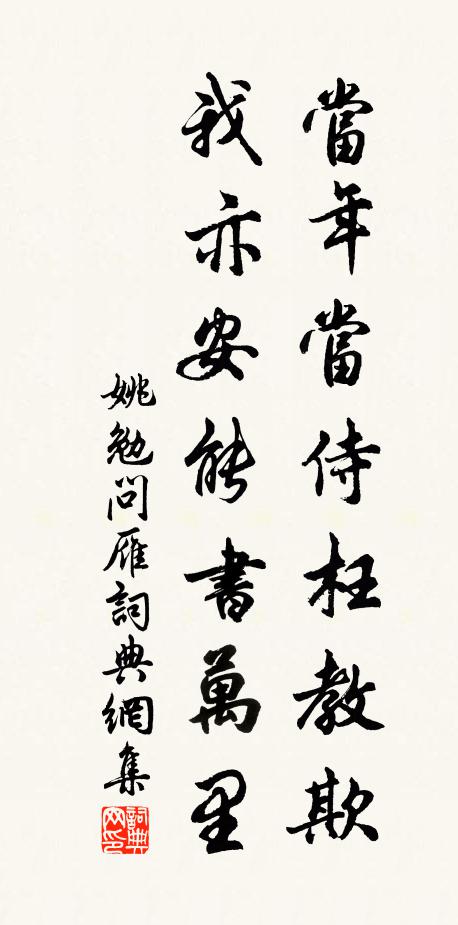 當年當侍枉教欺
我亦安能書萬里
姚勉問雁詞典網集
詞典網印